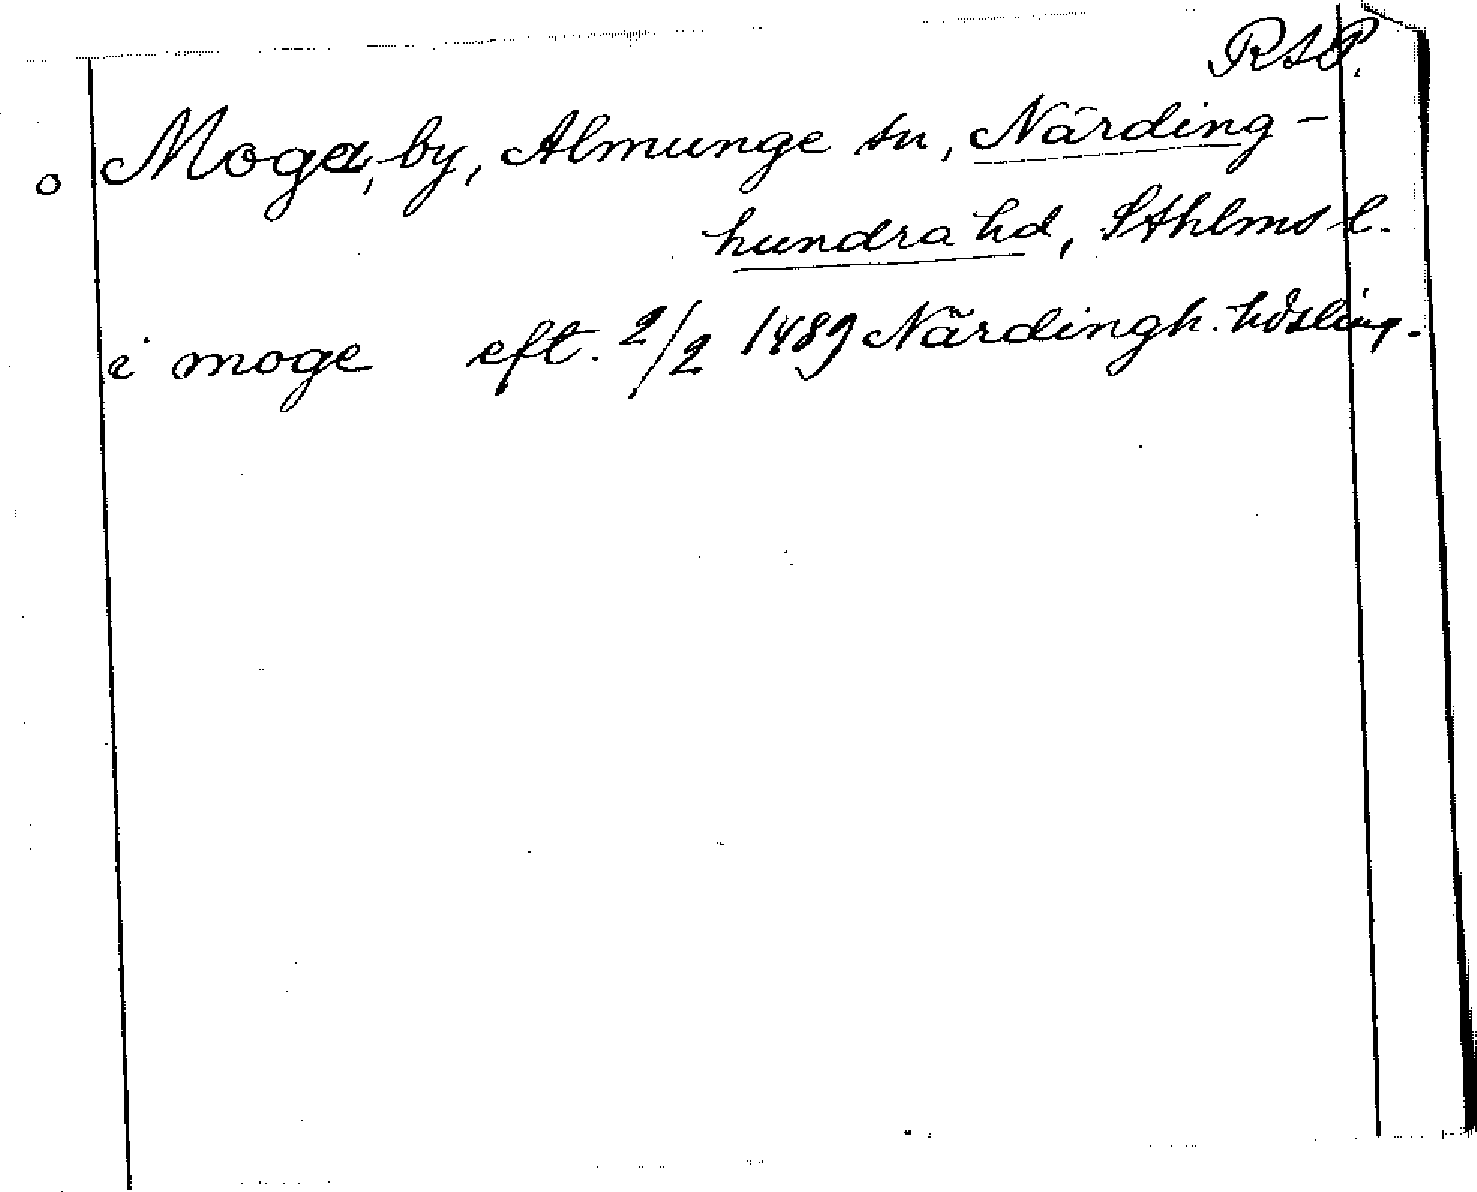 RAP.
o Moga, by, Almunge sn, Närding-
hundra hd, Sthlms l.
i moge eft. 2/2 1489 Närdingh. hdsting.